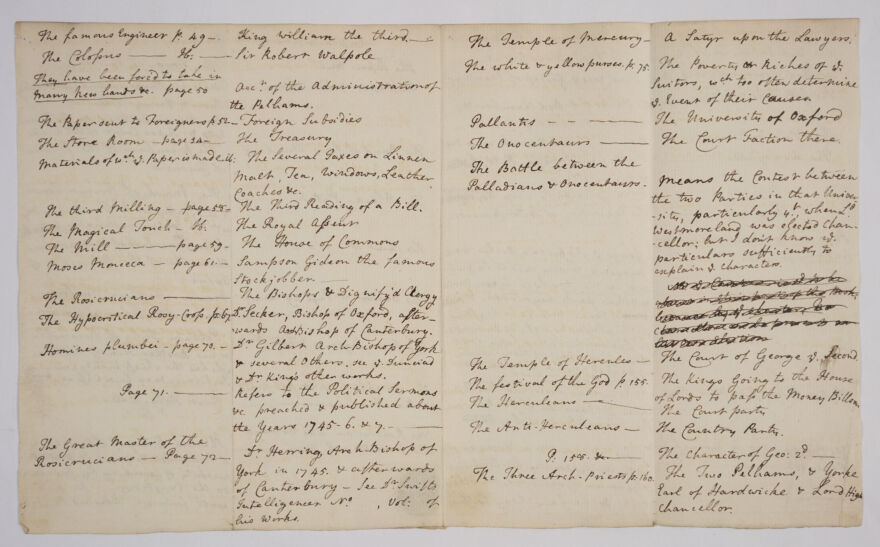 The famous Engineer p. 49 — King William the third. —
The Colossus — Ib: — Sir Robert Walpole
They have been forced to take in
many New hands &c. page 50 Acc.t of the Administration of
the Pelhams.
The Paper sent to Foreigners p. 52 — Foreign Subsidies
The Store Room — page 54 — The Treasury
Materials of wch ye Paper is made ib: The Several Taxes on Linnen
Malt, Tea, Windows, Leather
Coaches &c.
The third Milling — page 58 — The Third Reading of a Bill.
The Magical Touch — Ib. The Royal Assent
The Mill — page 59 — The House of Commons
Moses Monceca — page 61 — Sampson Gideon the famous
Stockjobber. —
The Rosicrucians — The Bishops & Dignify'd Clergy
The Hypocritical Rosy-Cross p. 67 Dr. Secker, Bishop of Oxford, after-
wards ArchBishop of Canterbury.
Homines plumbei — page 70 — Dr Gilbert ArchBishop of York
& several Others. see ye
& Dr King's other works.
Page 71. — Refers to the Political Sermons
&c. preached & published about
the Years 1745-6. & 7. —
The Great Master of the
Rosicrucians — Page 72 — Dr Herring, Arch-Bishop of
York in 1745. & afterwards
of Canterbury — See Dr Swifts
Intelligencer No , Vol: of
his Works.
The Temple of Mercury — A Satyr upon the Lawyers.
The white & yellow purses. p. 75. The Poverty or Riches of ye
Suitors, wch too often determine
ye Event of their Causes
Pallantis — The University of Oxford
The Onocentaurs — The Court Faction there.
The Battle between the
Palladians & Onocentaurs. means the Contest between
the two Parties in that Univer-
-sity, particularly yt, when Ld
Westmoreland was elected Chan-
-cellor; but I don't know ye
particulars sufficiently to
explain ye characters.
The Temple of Hercules — The Court of George ye Second.
The festival of the God p. 155. The Kings Going to the House
of Lords to pass the Money Bills
The Herculeans — The Court party
The Anti-Herculeans — The Country Party.
P. 155. &c — The Character of Geo: 2d. —
The Three Arch-Priests p. 160. The Two Pelhams, & Yorke
Earl of Hardwicke & Lord High
Chancellor.